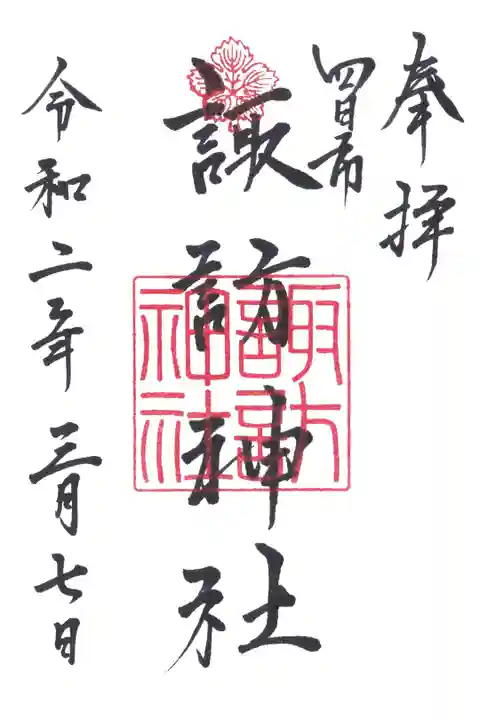 奉拝
四日市
諏訪神社
諏訪
神社
令和二年三月七日